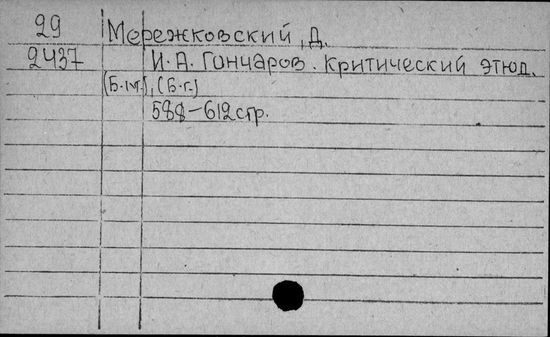 29 Мережковский, Д.
2437 И. А. Гончаров. Критический этюд.
(Б.м.), (Б.г.)
588-612 стр.